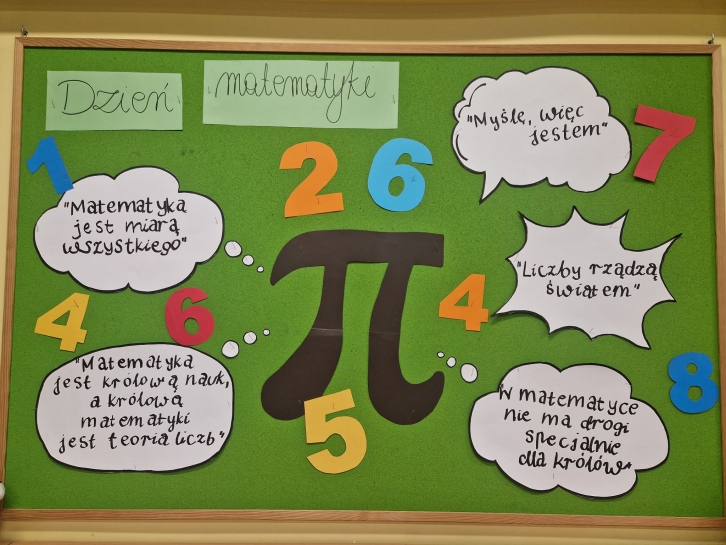 Dzień matematyki
"Myślę, więc
jestem"
7
1
2
6
"Matematyka
jest miarą
wszystkiego"
"Liczby rządzą
światem"
π
4
6
4
"Matematyka
jest królową nauk,
a królową
matematyki
jest teoria liczb"
5
8
"W matematyce
nie ma drogi
specjalnie
dla królów"